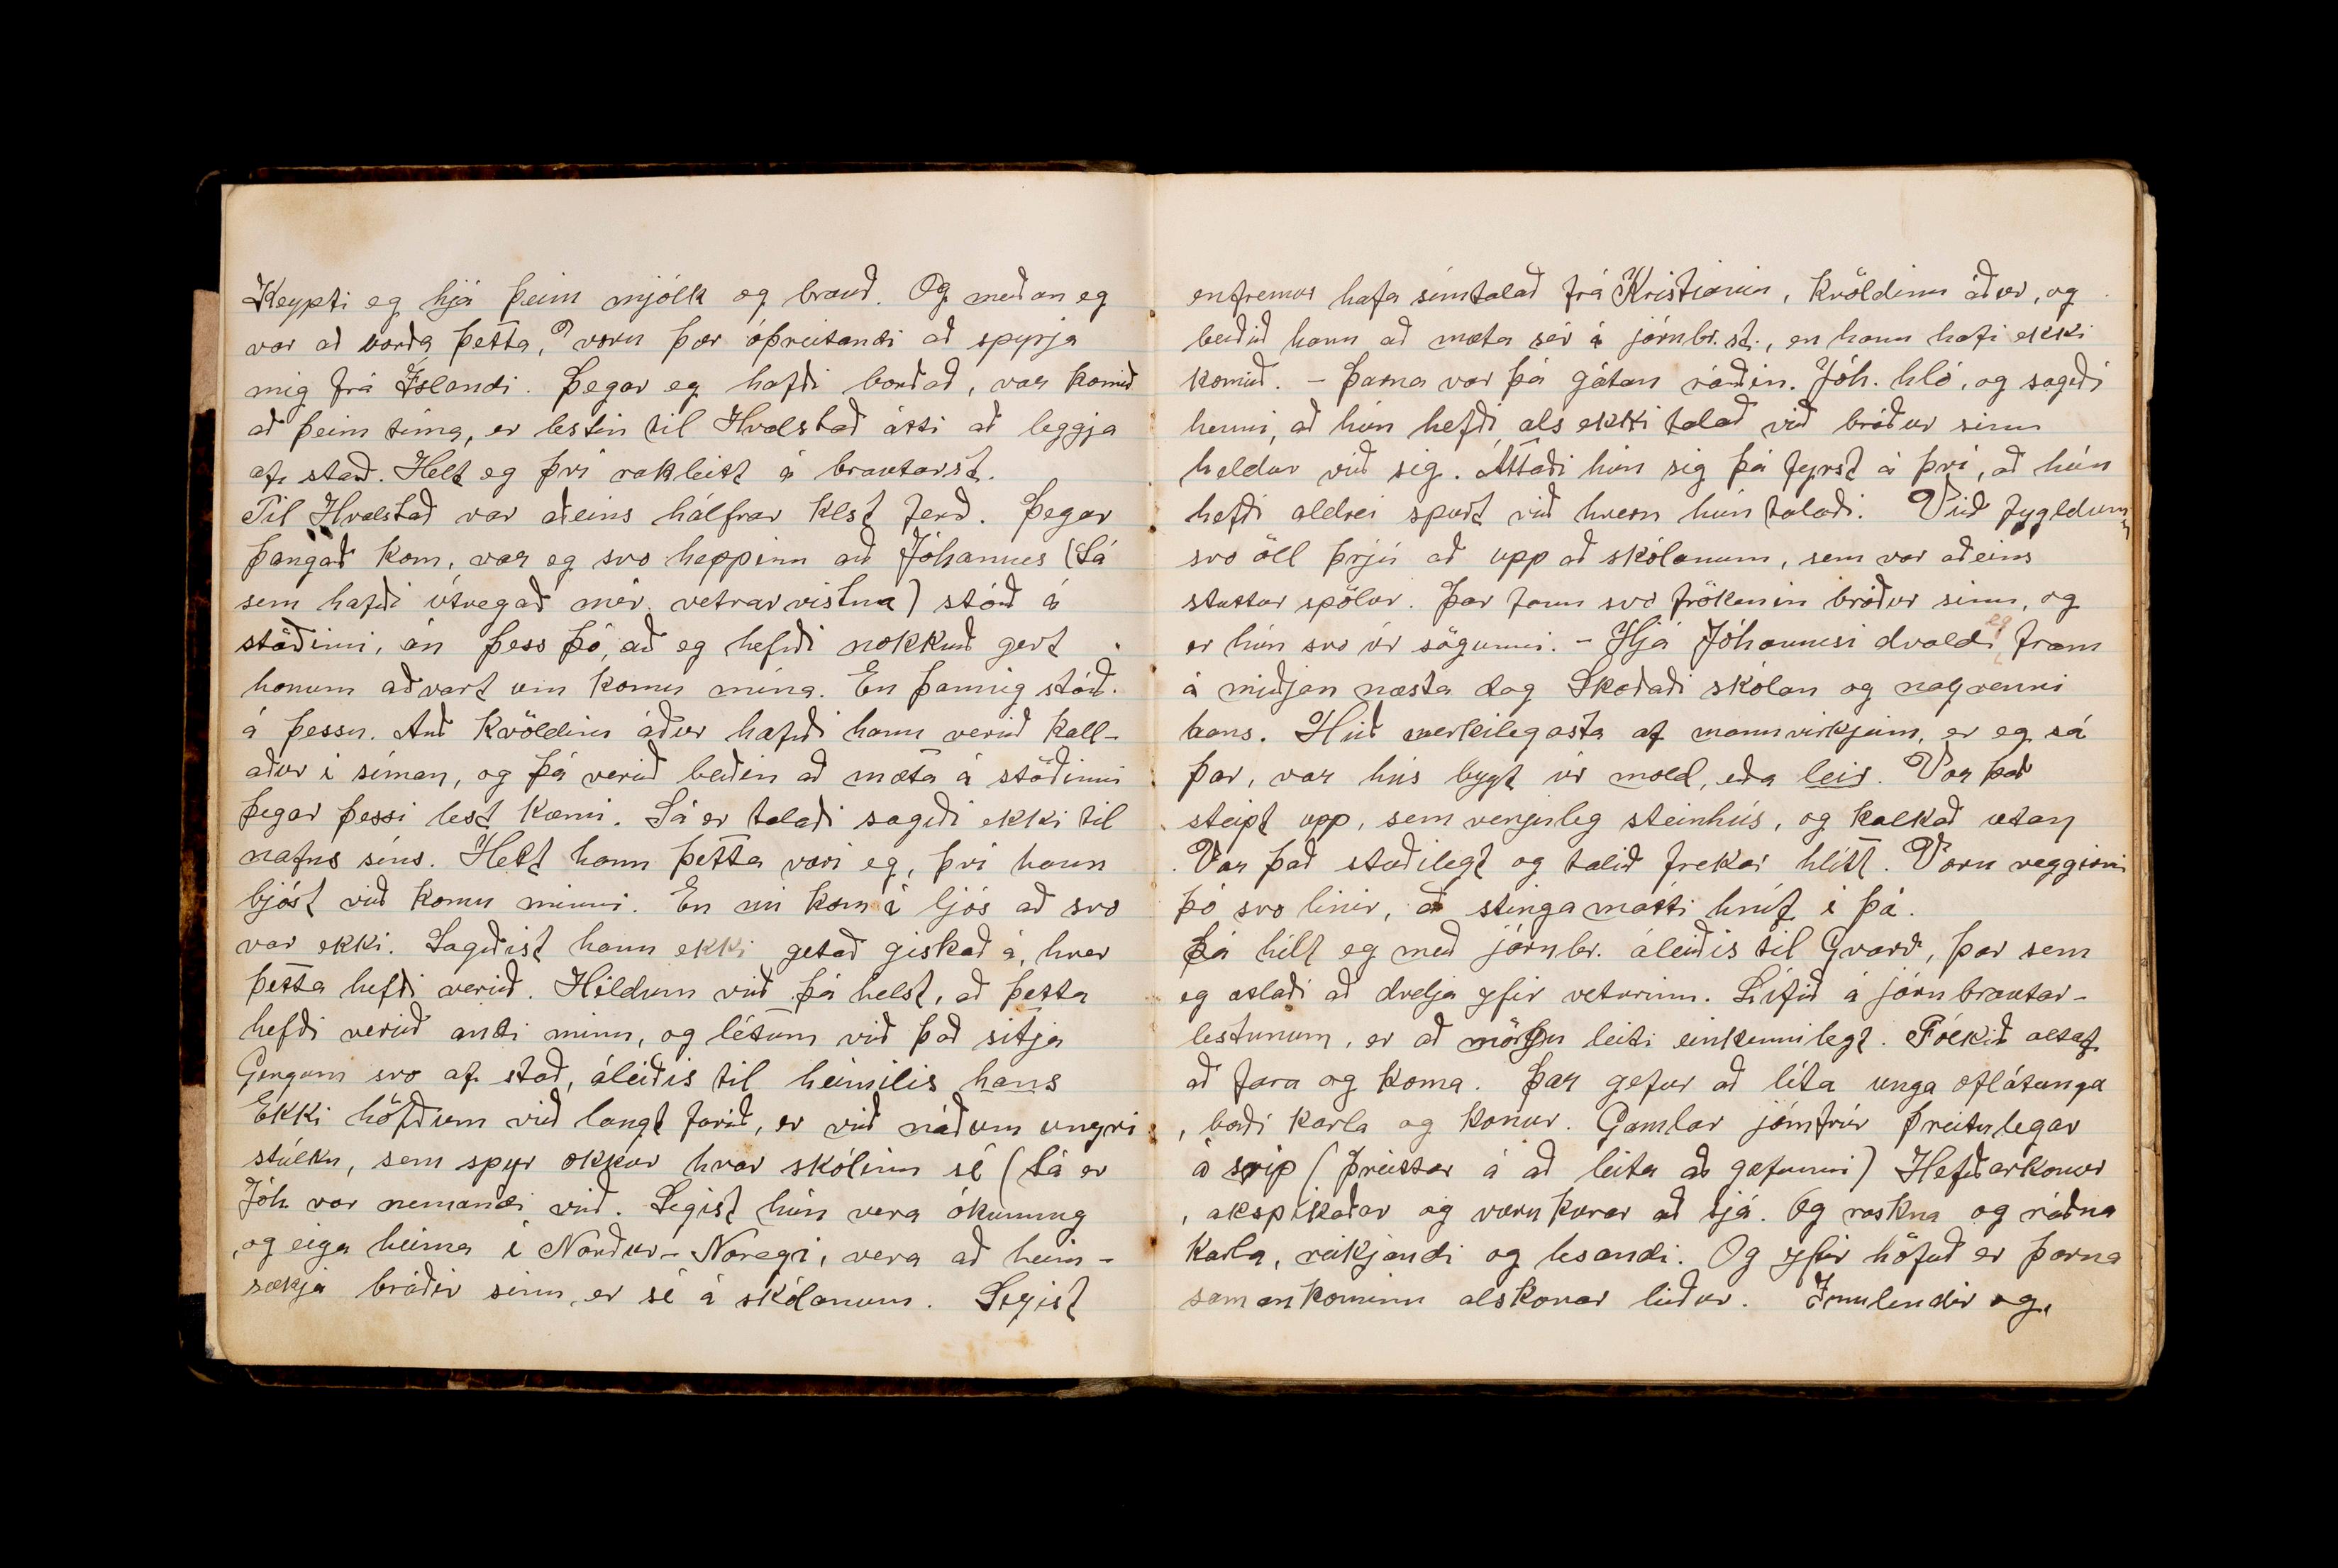 Keypti eg hjá þeim mjólk og brauð. Og meðan eg
var að borða þetta, voru þær óþreitandi að spyrja
mig frá Íslandi. Þegar eg hafði borðað, var komið
að þeim tíma, er lestin til Hvalstað átti að leggja
af stað. Helt eg því rakleitt á brautarst.
Til Hvalstað var aðeins hálfrar klst ferð. Þegar
þangað kom, var eg svo heppinn að Jóhannes (Sá
sem hafði útvegað mér vetrarvistna) stóð á
stöðinni, án þess þó, að eg hefði nokkuð gert
honum aðvart um komu mína. En þannig stóð
á þessu. Að kvöldinu áður hafði hann verið kall-
aður í síman, og þá verið beðin að mæta á stöðinni
þegar þessi lest kæmi. Sá er talaði sagði ekki til
nafns síns. Helt hann þetta væri eg, því hann
bjóst við komu minni. En nú kom í ljós að svo
var ekki. Sagðist hann ekki getað giskað á, hver
þetta hefði verið. Héldum við þá helst, að þetta
hefði verið andi minn, og létum við það sitja
Gengum svo af stað, áleiðis til heimilis hans
Ekki höfðum við langt farið, er við náðum ungri
stúlku, sem spyr okkur hvar skólinn sé (Sá er
Jóh. var nemandi við. Segist hún vera ókunnug
og eiga heima í Norður-Noregi, vera að heim-
sækja bróðir sinn, er sé á skólanum. Segist
enfremur hafa símtalað frá Kristianiu, kvöldinu áður, og
beðið hann að mæta sér á járnbr.st., en hann hafi ekki
komið. - Þarna var þá gátan ráðin. Jóh. hló, og sagði
henni, að hún hefði als ekki talað við bróður sinn
heldur við sig. Áttaði hún sig þá fyrst á því, að hún
hefði aldrei spurt við hvern hún talaði. Við fygldumst
svo öll þrjú að upp að skólanum, sem var aðeins
stuttur spölur. Þar fann svo frökenin bróður sinn, og
er hún svo úr sögunni. - Hjá Jóhannesi dvaldi eg fram
á miðjan næsta dag Skoðaði skólan og nagrenni
hans. Hið merkilegasta af mannvirkjum, er eg sá
þar, var hús bygt úr mold, eða leir. Var það
steipt upp, sem venjuleg steinhús, og kalkað utan
Var það stæðilegt og talið frekar hlítt. Voru veggirnir
þó svo linir, að stinga mátti hníf í þá.
Þá hélt eg með járnbr. áleiðis til Gvarv, þar sem
eg ætlaði að dvelja yfir veturinn. Lífið á járnbrautar-
lestunum, er að mörgu leiti einkennilegt. Fólkið altaf
að fara og koma. Þar gefur að líta unga oflátunga
, bæði karla og konur. Gamlar jómfrúr þreitulegar
á svip (þreittar á að leita að gæfunni) Hefðarkonur
, akspikaðar og værukærar að sjá. Og roskna og ráðna
karla, reikjandi og lesandi. Og yfir höfuð er þarna
samankominn alskonar líður. Innlendir og